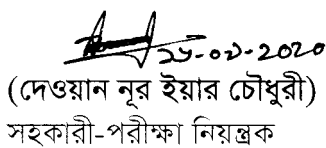 ২৮-০১-২০২০
(দেওয়ান নূর ইয়ার চৌধুরী)
সহকারী-পরীক্ষা নিয়ন্ত্রক